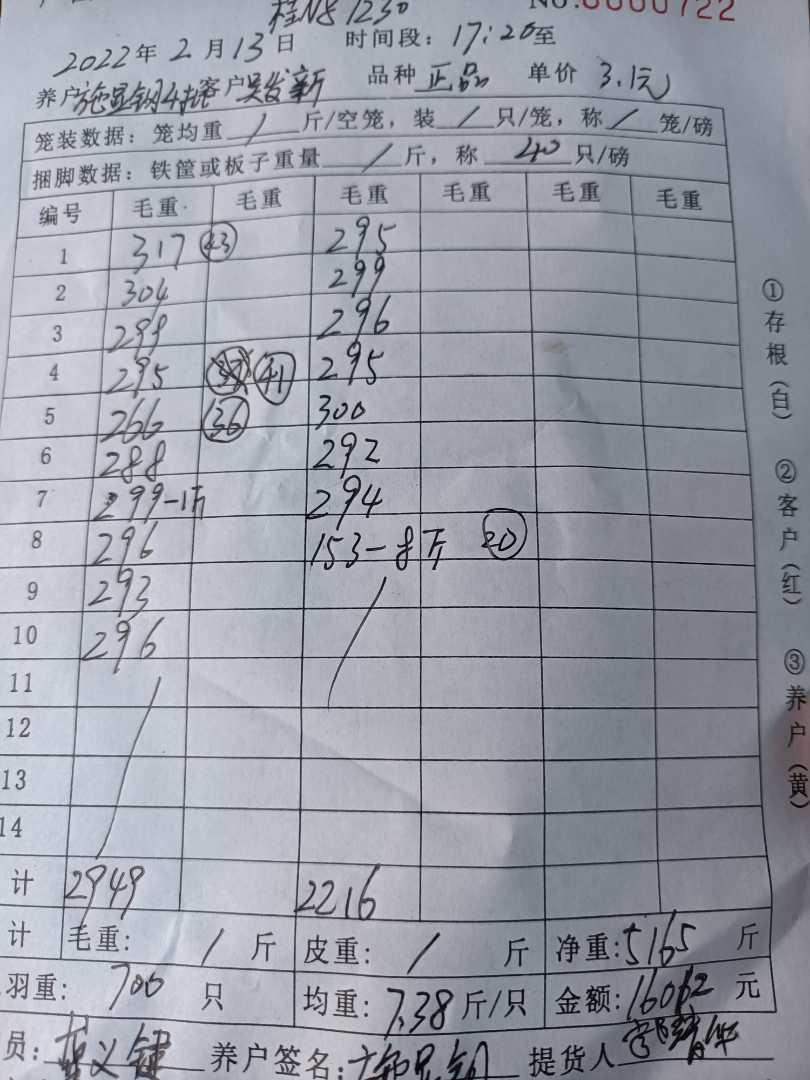 桂N8 1230
No.0000722
2022年2月13日 时间段：17:20至
养户施显钢4批客户吴发新 品种 正品 单价 3.1元
笼装数据：笼均重 / 斤/空笼，装 / 只/笼，称 / 笼/磅
捆脚数据：铁筐或板子重量 / 斤，称 40 只/磅
编号 毛重 毛重 毛重 毛重 毛重 毛重
1 317 43 295
2 304 299
3 299 296
4 295 41 295
5 266 36 300
6 288 292
7 299-1斤 294
8 296 153-8斤 20
9 293
10 296
11
12
13
14
计 2949 2216
计 毛重： / 斤 皮重： / 斤 净重：5165 斤
羽重： 700 只 均重：7.38斤/只 金额：16012 元
员： 养户签名： 提货人
①存根（白） ②客户（红） ③养户（黄）